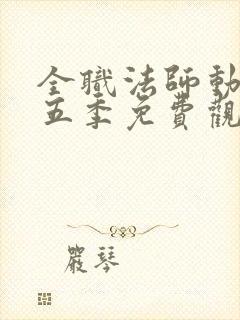 全職法師動
五季免費觀
嚴琴